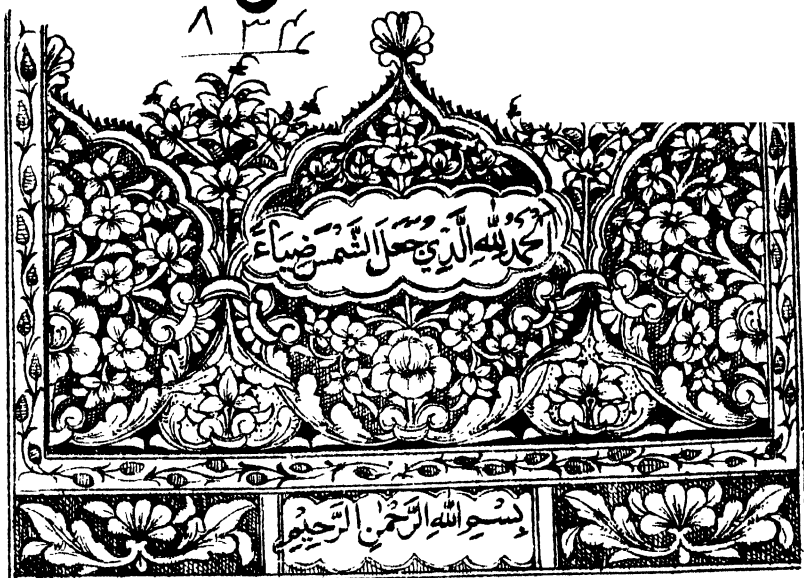 اَلحَمْدُ لِلّٰهِ الَّذِيْ جَعَلَ الشَّمْسَ ضِيَاءً
بِسْمِ اللهِ الرَّحْمٰنِ الرَّحِيْمِ